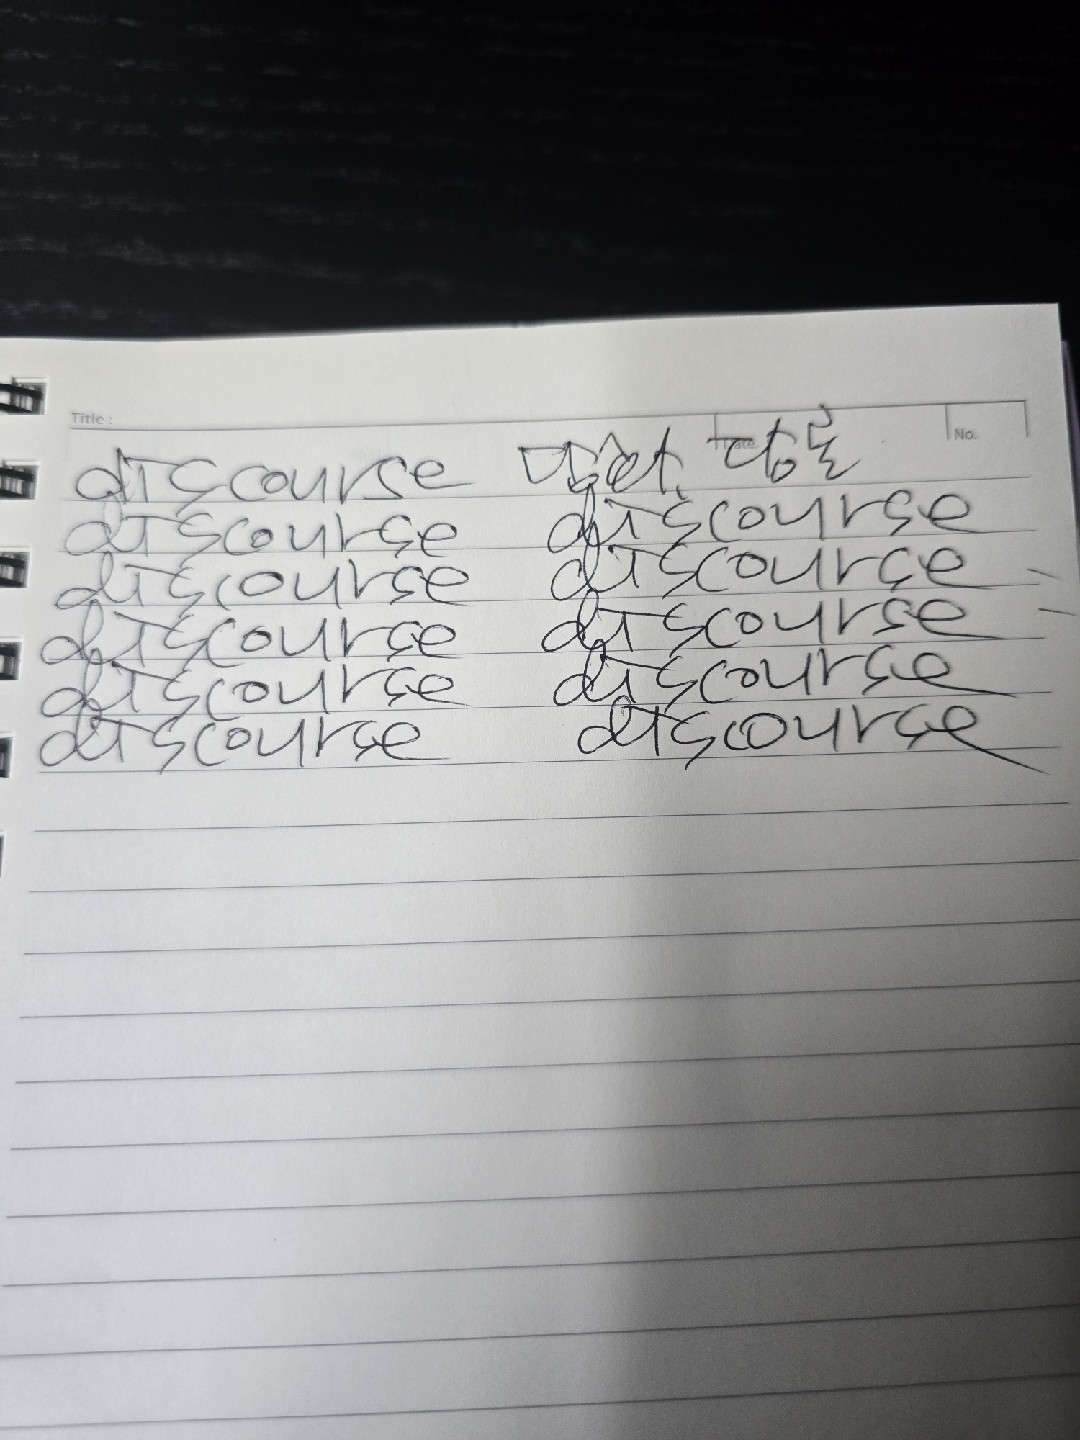 Title :
Date. No.
discourse 담화, 담론
discourse discourse
discourse discourse
discourse discourse
discourse discourse
discourse discourse